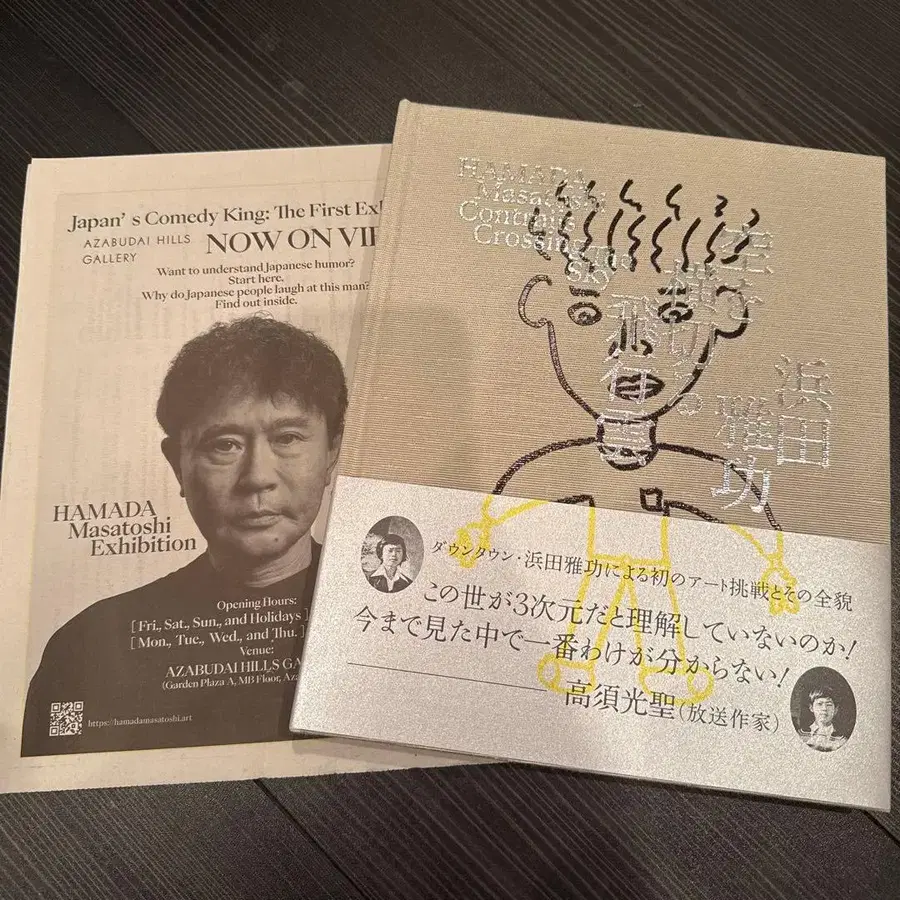 Japan's Comedy King: The First
AZABUDAI HILLS
GALLERY
NOW ON
Want to understand Japanese humor?
Start here.
Why do Japanese people laugh at this man?
Find out inside.
HAMADA
Masatoshi
Exhibition
Opening Hours:
[Fri., Sat., Sun., and Holidays]
[Mon., Tue., Wed., and Thu.]
Venue:
AZABUDAI HILLS
(Garden Plaza A, MB Floor,
https://hamadamasatoshi.art
HAMADA
Masatoshi
Contrails
Crossing
the
Sky
空を
横切る。
飛行雲
浜田
雅功
ダウンタウン・浜田雅功による初のアート挑戦とその全貌
この世が3次元だと理解していないのか!
今まで見た中で一番わけが分からない!
高須光聖(放送作家)